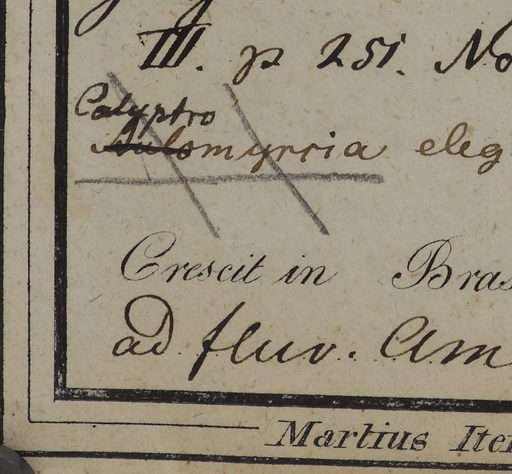 III. p 251. No
Calyptro
Aulomyrcia eleg
Crescit in Bras
ad fluv. Am
Martius Iter